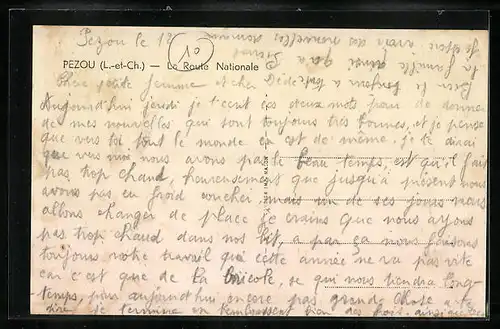 Pezou le 18
10
PEZOU (L.-et-Ch.) — La Route Nationale
Chère petite femme et cher Dédé
Aujourd'hui jeudi je t'ecrit ces deux mots pour de donner
de mes nouvelles qui sont toujours très bonnes, et je pense
que vers toi tout le monde en est de même. je te dirai
que vers moi nous avons pas le beau temps, est qu'il fait
pas trop chaud, heureusement que jusqu'a présent nous
avons pas eu froid coucher mais un de ses jours nous
allons changer de place je crains que nous ayons
pas trop chaud dans nos lit, a par ça nous faisons
toujours notre travail que cette année ne va pas vite
car c'est que de la bricole, se qui nous tiendra long-
temps, pour aujourd'hui encore pas grande chose a te
dire, je termine en t'embrassant bien des fois ainsi que
la famille ainsi qu'a